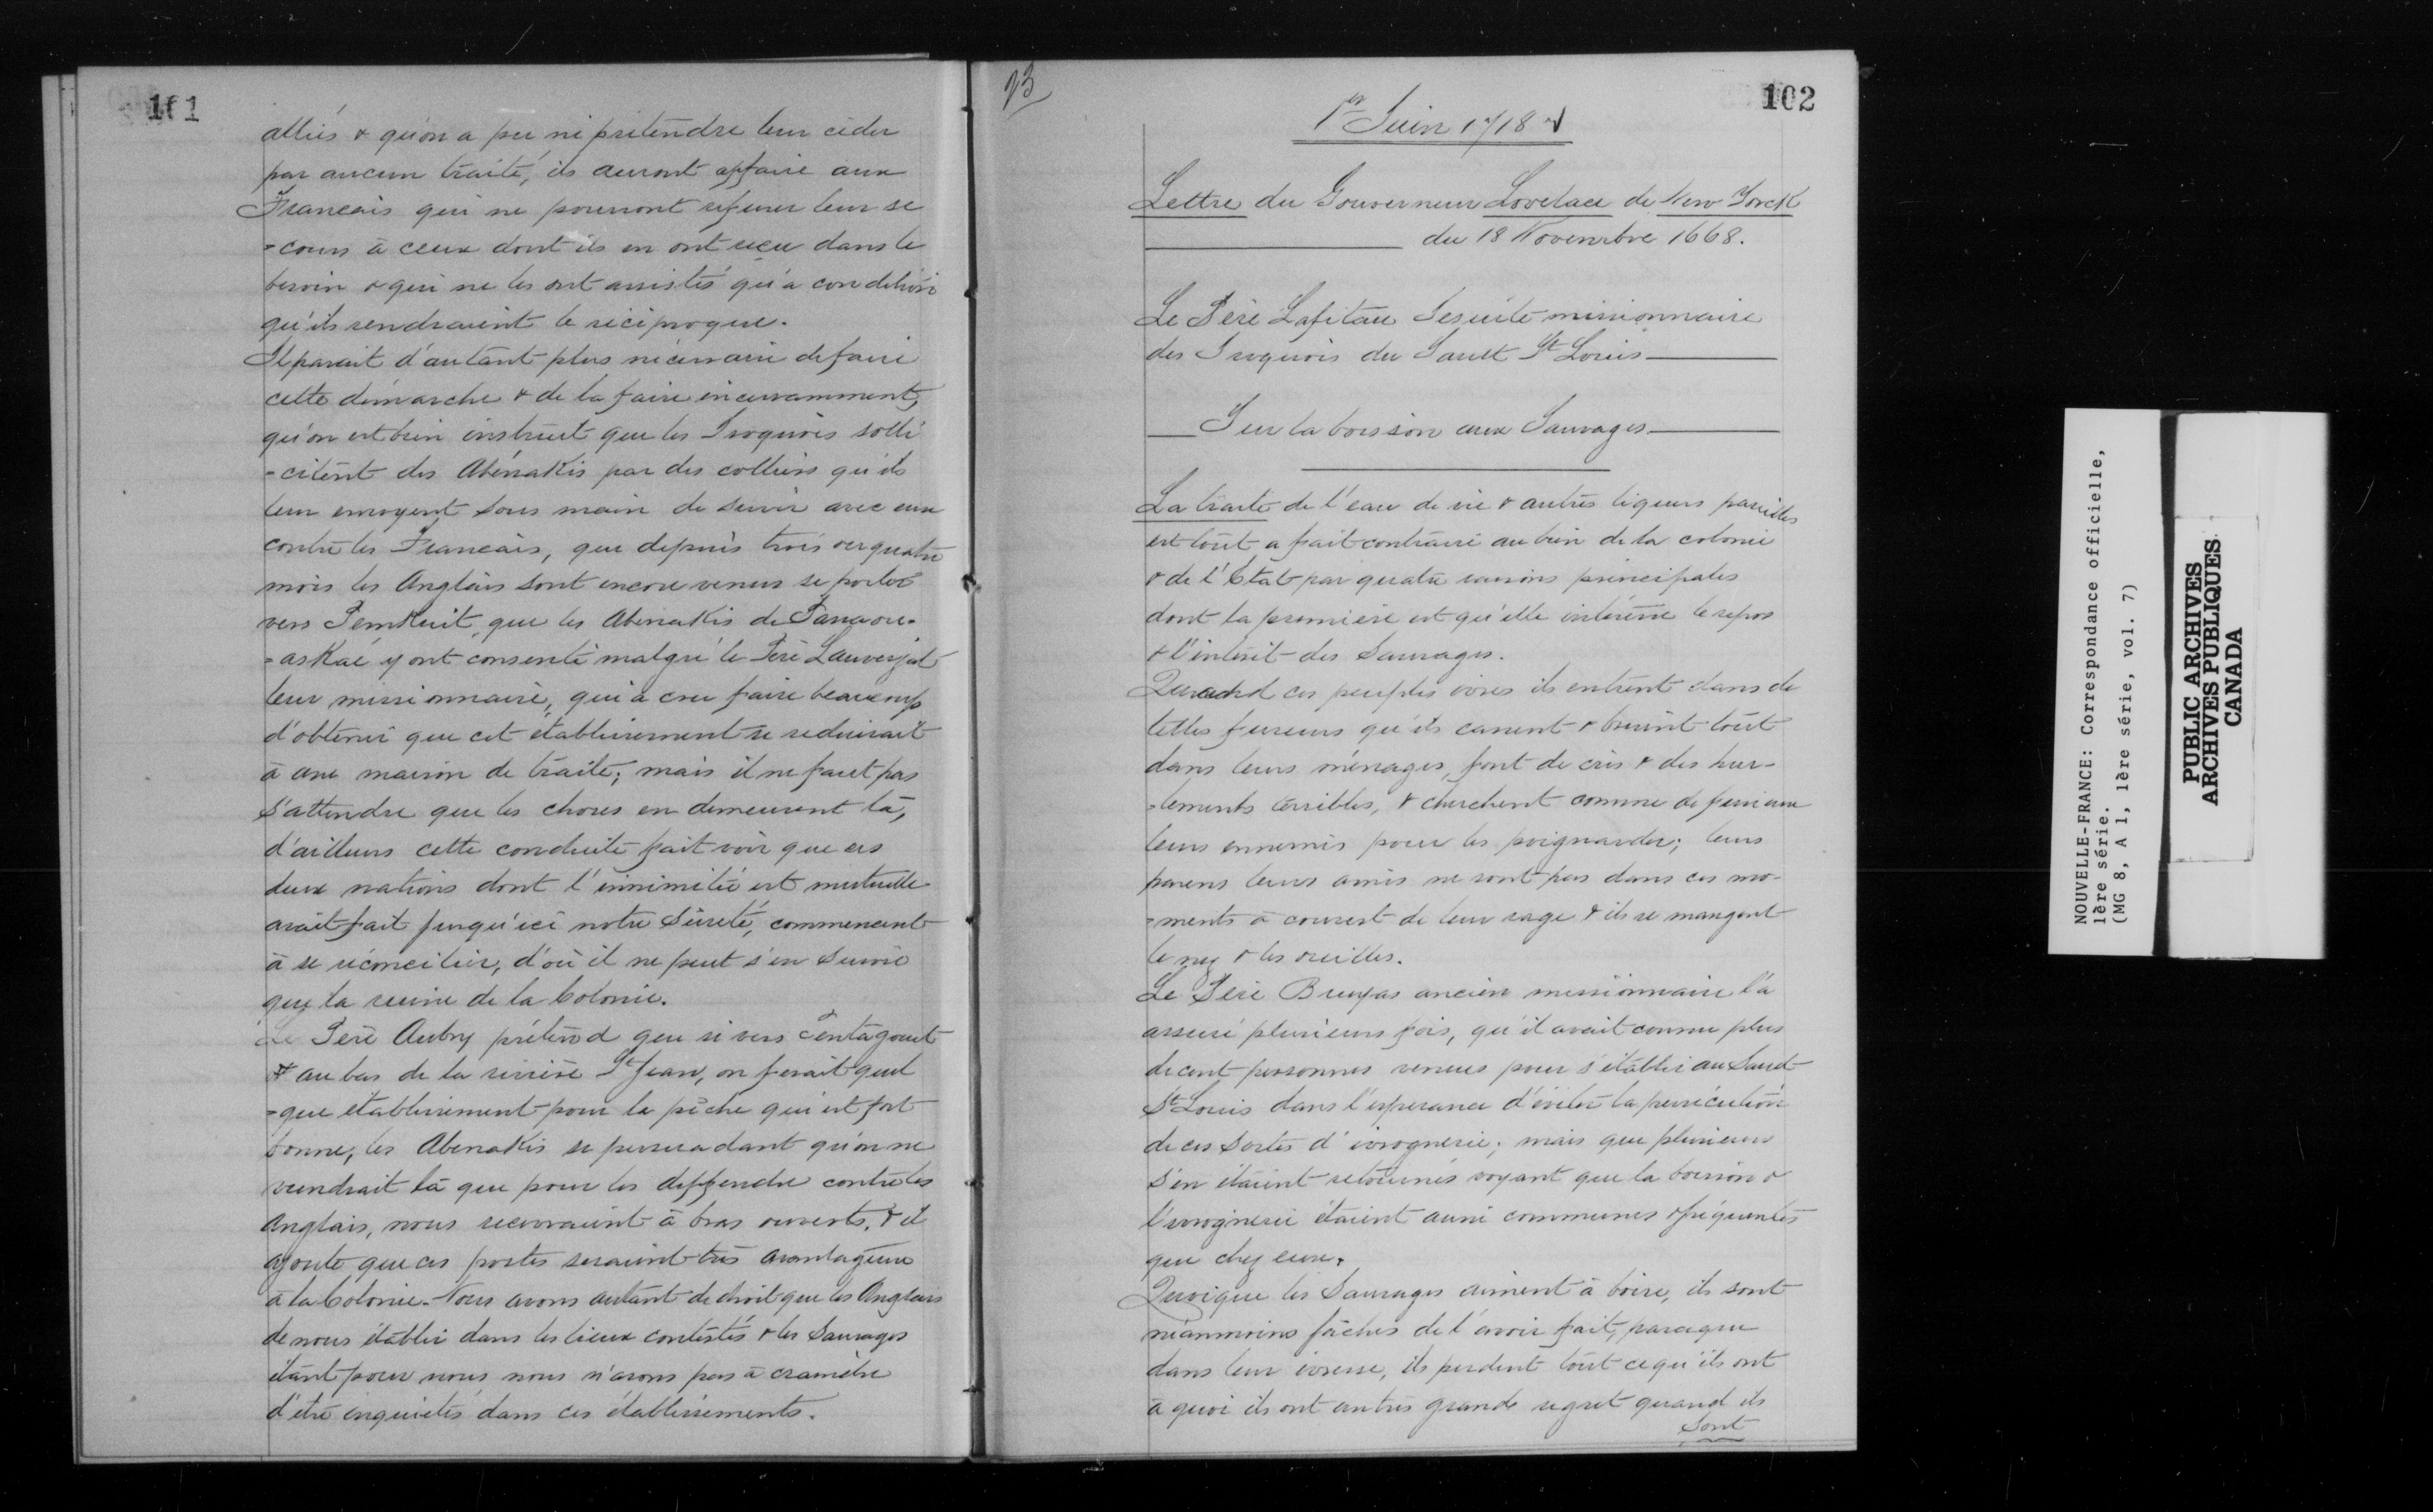 101
alliés & qu'on a peu ni prétendre leur céder
par aucun traité, ils auront affaire aux
Francais qui ne pourront refuser leur se
=cours à ceux dont ils en ont reçu dans le
besoin & qui ne les ont assistés qu'à condition
qu'ils rendraient le réciproque.
Il parait d'autant plus nécessaire de faire
cette démarche & de la faire incessamment,
qu'on est bien instruit que les Iroquois solli
=citent des Abénakis par des colliers qu'ils
leur envoyent sous main de s'unir avec eux
contre les Francais, que depuis trois ou quatre
mois les Anglais sont encore venus se poster
vers Pemkuit, que les Abenakis de Panaou-
=askaé y ont consenti malgré le Père Lauverjat
leur missionnaire, qui a cru faire beaucoup
d'obtenir que cet établissement se reduirait
à une maison de traite; mais il ne faut pas
s'attendre que les choses en demeurent là,
d'ailleurs cette conduite fait voir que ces
deux nations dont l'innimitié est mutuelle
avait fait jusqu'ici notre sûreté, commencent
à se réconcilier, d'où il ne peut s'en suivre
que la ruine de la Colonie.
Le Père Aubry prétend que si vers Pentagouet
& au bas de la rivière St Jean, on ferait quel
=que établissement pour la pêche qui est fort
bonne, les Abenakis se persuadant qu'on ne
viendrait là que pour les deffendre contre les
Anglais, nous recevraient à bras ouverts, & il
ajoute que ces postes seraient très avantageux
à la Colonie. Nous avons autant de droit que les Anglais
de nous établir dans les lieux contestés & les Sauvages
étant pour nous nous n'avons pas à craindre
d'être inquiétés dans ces établissements.
93
102
1er Juin 1718
Lettre du Gouverneur Lovelace de New Yorck
du 18 Novembre 1668.
Le Père Lafitau Jesuite missionnaire
des Iroquois du Sault St Louis
Sur la boisson aux Sauvages
La traite de l'eau de vie & autres liqueurs pareilles
est tout a fait contraire au bien de la colonie
& de l'Etat par quatre raisons principales
dont la première est qu'elle intéresse le repos
& l'intérêt des Sauvages.
Quand ces peuples ivres ils entrent dans de
telles fureurs qu'ils cassent & brisent tout
dans leurs ménages, font de cris & des hur-
=lements terribles, & cherchent comme de furieux
leurs ennemis pour les poignarder; leurs
parens leurs amis ne sont pas dans ces mo-
=ments à couvert de leur rage & ils se mangent
le nez & les oreilles.
Le Père Bruyas ancien missionnaire l'a
assuré plusieurs fois, qu'il avait connu plus
de cent personnes venues pour s'établir au Sault
St Louis dans l'esperance d'éviter la persécution
de ces sortes d'ivrognerie; mais que plusieurs
s'en étaient retournés voyant que la boisson &
l'ivrognerie étaient aussi communes & fréquentes
que chez eux.
Quoique les Sauvages aiment à boire, ils sont
néanmoins fâchés de l'avoir fait, parceque
dans leur ivresse, ils perdent tout ce qu'ils ont
à quoi ils ont un très grands regret quand ils
sont
NOUVELLE-FRANCE: Correspondance officielle,
1ère série.
(MG 8, A 1, 1ère série, vol. 7)
PUBLIC ARCHIVES
ARCHIVES PUBLIQUES
CANADA